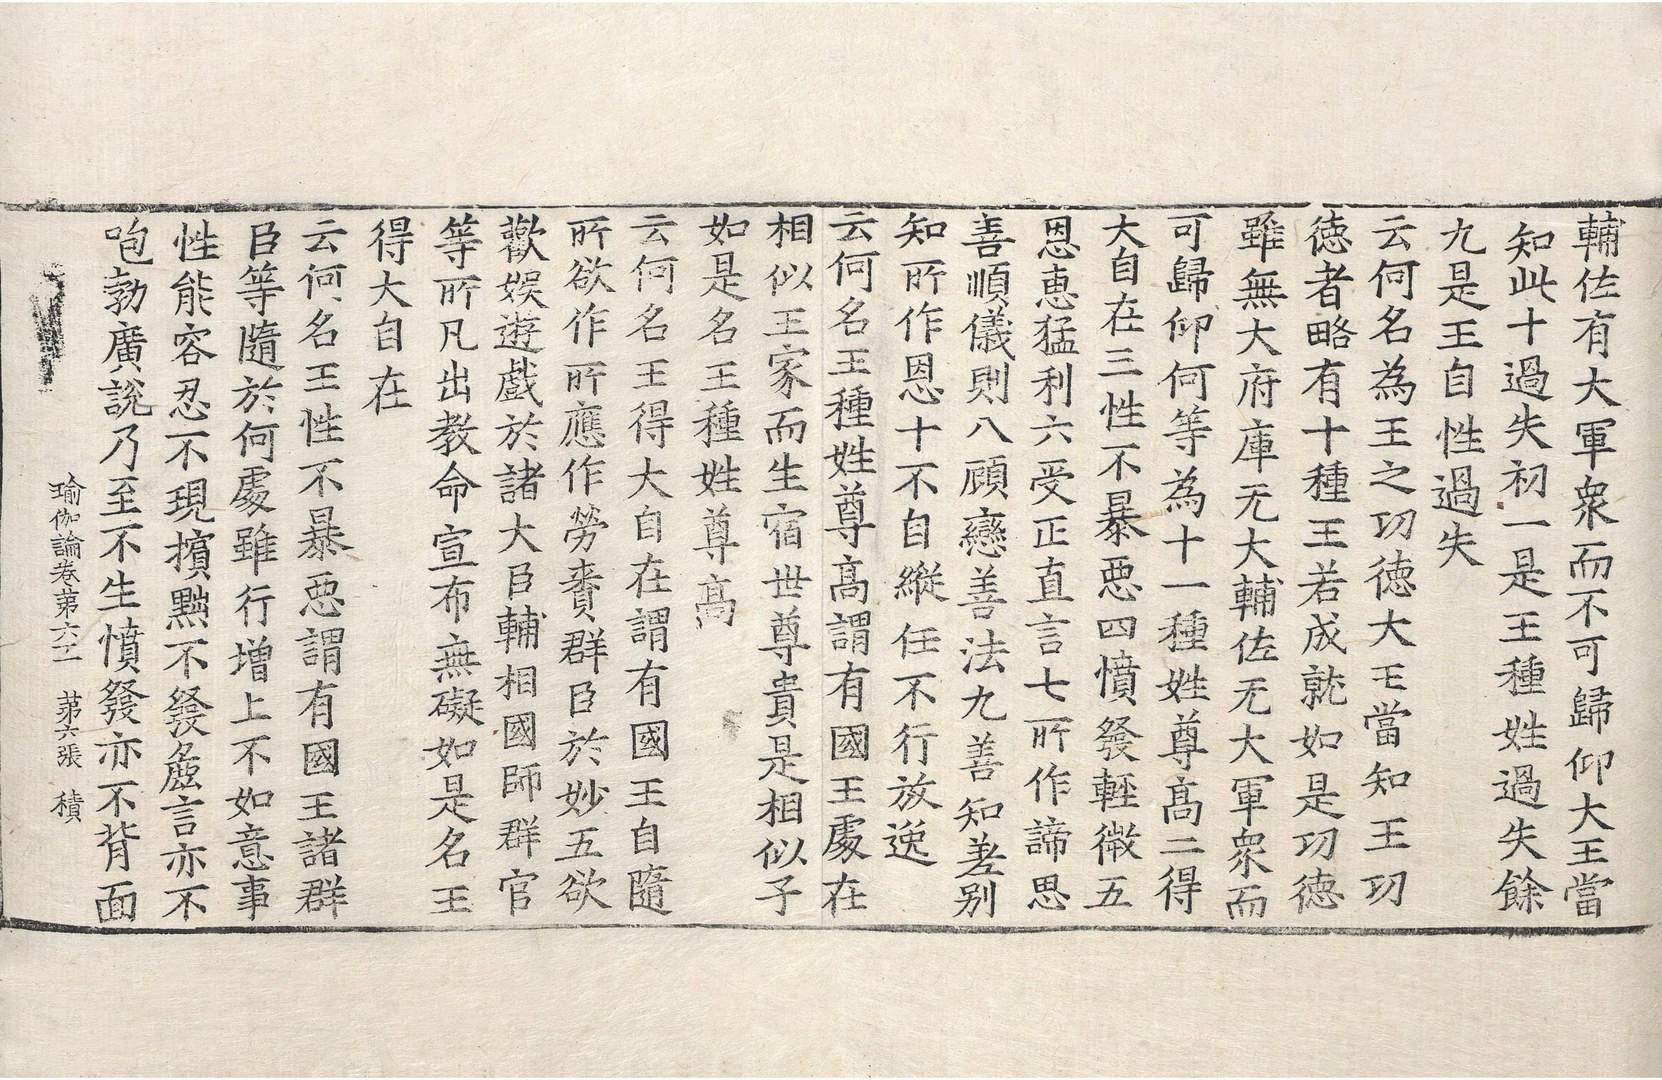 輔佐有大軍衆而不可歸仰大王當
知此十過失初一是王種姓過失餘
九是王自性過失
云何名為王之功德大王當知王功
德者略有十種王若成就如是功德
雖無大府庫无大輔佐无大軍衆而
可歸仰何等為十一種姓尊髙二得
大自在三性不暴惡四憤發輕微五
恩恵猛利六受正直言七所作諦思
善順儀則八顧戀善法九善知差别
知所作恩十不自縱任不行放逸
云何名王種姓尊髙謂有國王處在
相似王家而生宿世尊貴是相似子
如是名王種姓尊髙
云何名王得大自在謂有國王自隨
所欲作所應作勞賚群臣於妙五欲
歡娛遊戲於諸大臣輔相國師群官
等所凡出教命宣布無礙如是名王
得大自在
云何名王性不暴惡謂有國王諸群
臣等隨於何處雖行增上不如意事
性能容忍不現擯黜不發麁言亦不
咆勃廣說乃至不生憤發亦不背面
瑜伽論卷第六十一　第六張　積